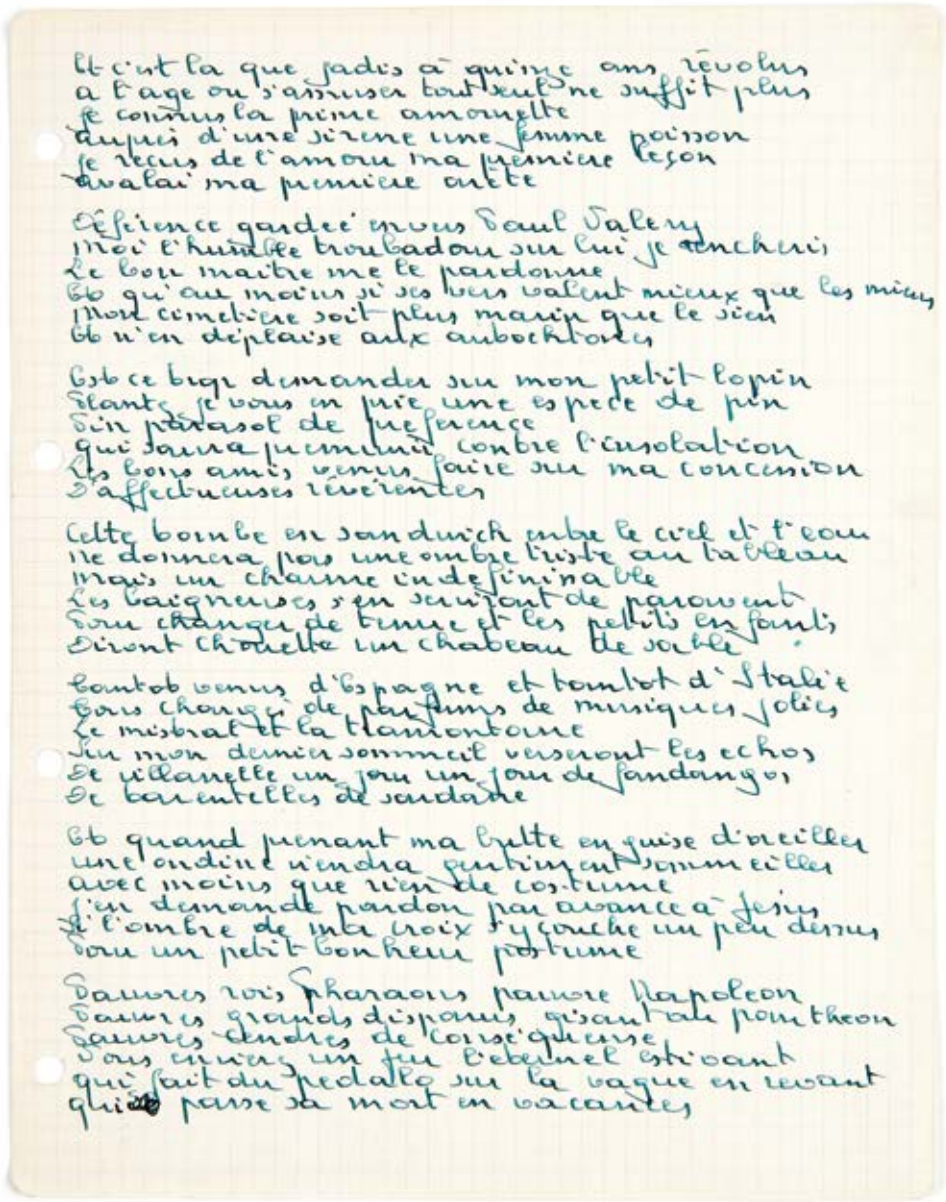 Et c'est la que jadis à quinze ans révolus
a l'age ou s'amuser tout seul ne suffit plus
Je connus la prime amourette
Auprès d'une sirene une femme poisson
Je reçus de l'amour ma première leçon
Avalai ma premiere arête
Déférence gardée envers Paul Valery
Moi l'humble troubadour sur lui je renchéris
Le bon maitre me le pardonne
Et qu'au moins si ses vers valent mieux que les miens
Mon cimetière soit plus marin que le sien
Et n'en déplaise aux autochtones
Est ce trop demander sur mon petit lopin
Plantez je vous en prie une espece de pin
Pin parasol de preference
qui saura premunir contre l'insolation
Les bons amis venus faire sur ma concession
D'affectueuses révérences
Cette tombe en sandwich entre le ciel et l'eau
ne donnera pas une ombre triste au tableau
Mais un charme indefinissable
Les baigneuses s'en serviront de paravent
Pour changer de tenue et les petits enfants
Diront Chouette un chateau de sable
Tantot venus d'Espagne et tantot d'Italie
Tous chargés de parfums de musiques jolies
Le mistral et la tramontane
Sur mon dernier sommeil verseront les echos
De villanelle un jour un jour de fandango,
De tarentelles de sardane
Et quand prenant ma butte en guise d'oreiller
une ondine viendra gentiment sommeiller
avec moins que rien de costume
J'en demande pardon par avance à Jesus
Si l'ombre de ma croix s'y couche un peu dessus
Pour un petit bonheur postume
Pauvres rois Pharaons pauvre Napoleon
Pauvres grands disparus gisant au pantheon
Pauvres cendres de conséquense
Vous envierez un peu l'eternel estivant
qui fait du pedalo sur la vague en revant
qui passe sa mort en vacances